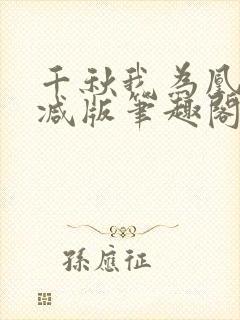 千秋我为凰
减版笔趣阁
孫應征